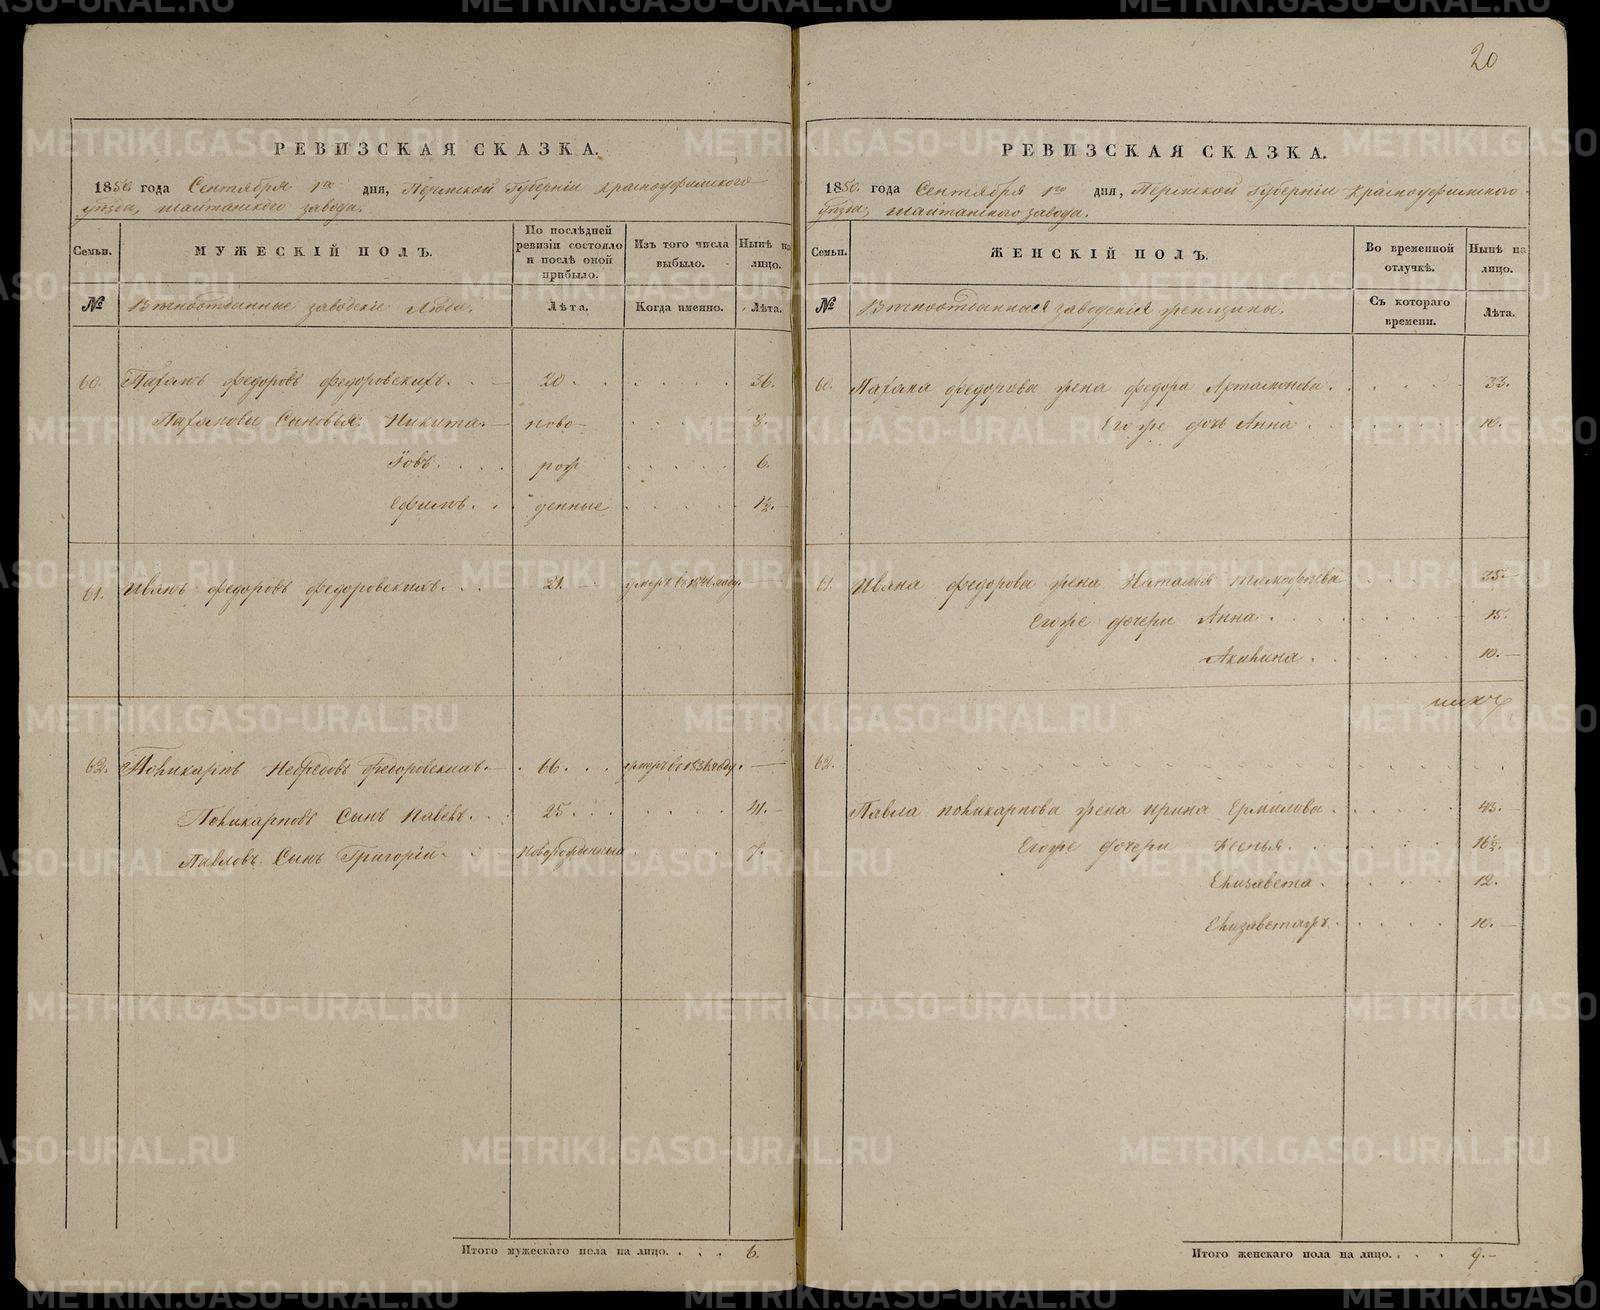 20
РЕВИЗСКАЯ СКАЗКА.
1850 года Сентября 1го дня, Пермской Губерніи Красноуфимского
уѣзда, Шайтанского завода.
Семьи.
МУЖЕСКІЙ ПОЛЪ.
По послѣдней ревизіи состояло и послѣ оной прибыло.
Изъ того числа выбыло.
Нынѣ на лицо.
№
Вѣчноотданные заводскіе Люди.
Лѣта.
Когда именно.
Лѣта.
60. Федоровъ Федоровскихъ. 20 36.
Сыновья: Никита. ново 9.
Іовъ. рож 6.
Ефимъ. денные 1½.
61. Иванъ Федоровъ Федоровскихъ. 21. умеръ въ 1841 году.
62. Поликарпъ Федоровскихъ. 66. умеръ въ году.
Поликарповъ Сынъ Павелъ. 25 41.
Павловъ Сынъ Григорій. Новорожденный 7.
Итого мужескаго пола на лицо. 6.
РЕВИЗСКАЯ СКАЗКА.
1850. года Сентября 1го дня, Пермской Губерніи Красноуфимского
уѣзда, Шайтанского завода.
Семьи.
ЖЕНСКІЙ ПОЛЪ.
Во временной отлучкѣ.
Нынѣ на лицо.
№
Вѣчноотданныя заводскія женщины.
Съ котораго времени.
Лѣта.
60. Федорова жена Федора Артамонова. 33.
Его же дочь Анна 10.
61. Ивана Федорова жена Наталья Тимофѣева 35.
Его же дочери Анна. 15.
Акилина. 10.
62.
Павла Поликарпова жена Ирина Ермилова. 43.
Его же дочери Ксенья. 16½.
Елизавета. 12.
Елизавета жъ. 10.
Итого женскаго пола на лицо. 9.
METRIKI.GASO-URAL.RU